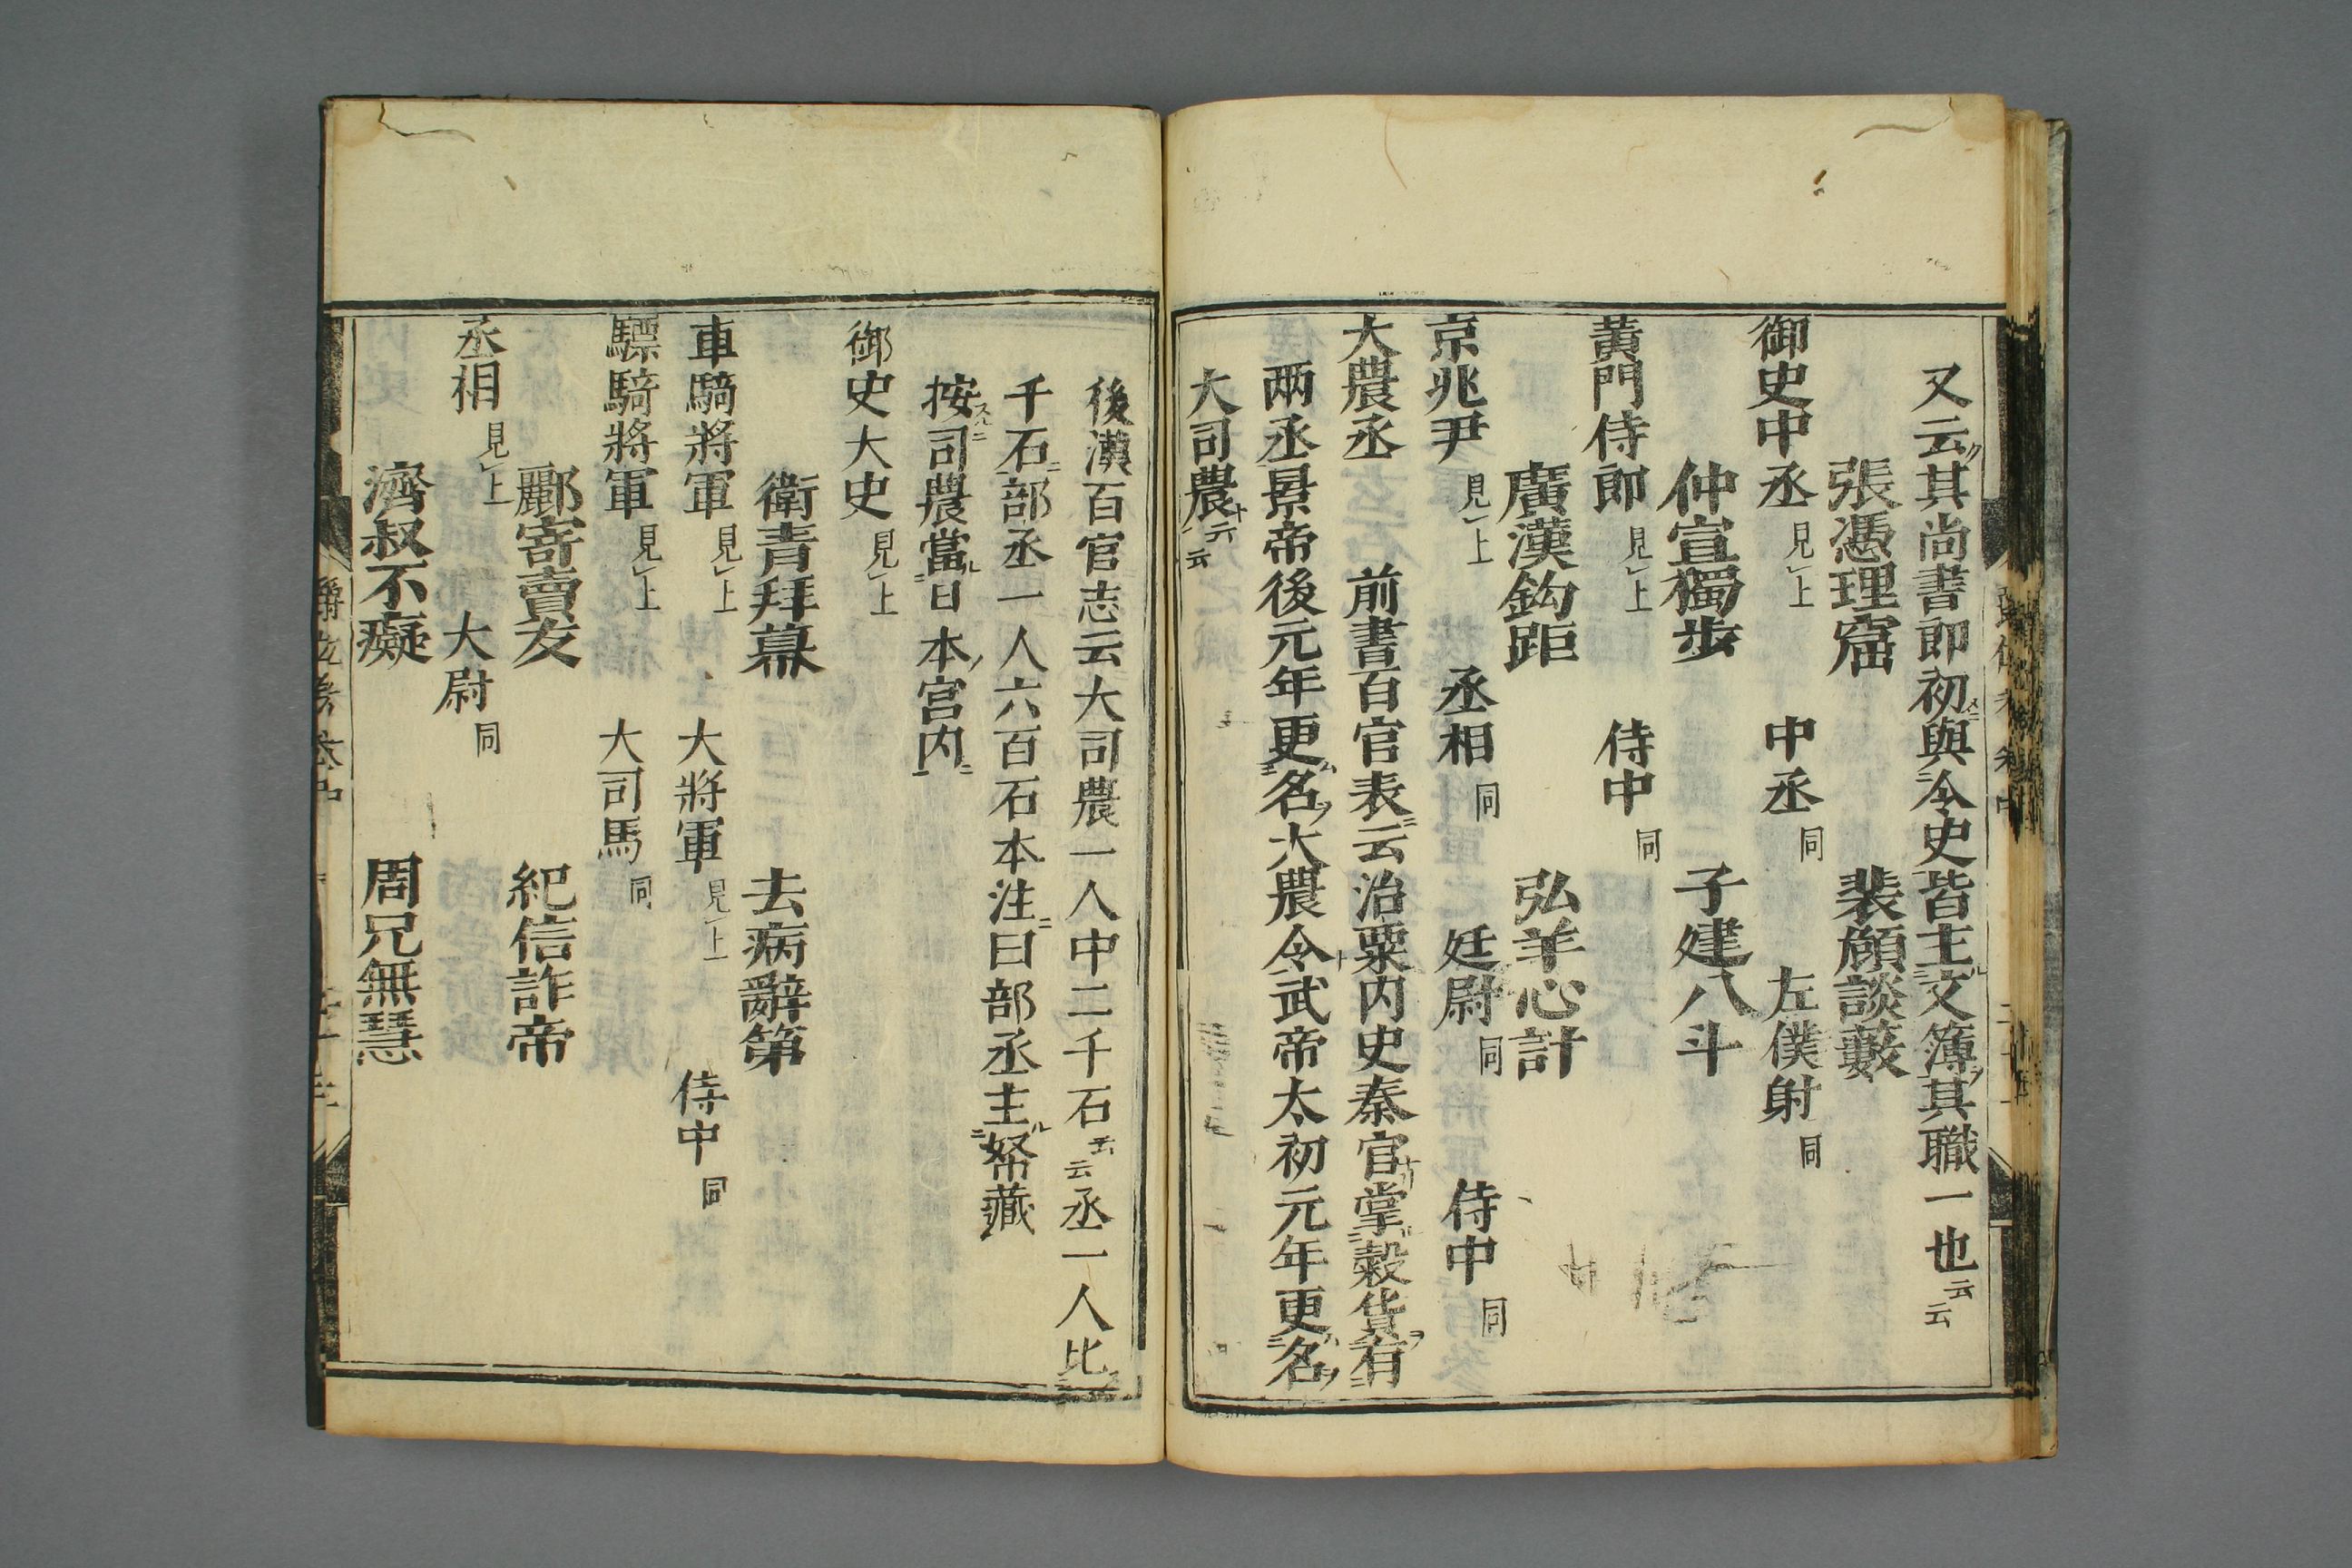 又云其尚書郎初與令史皆主文簿其職一也云云
張憑理窟 裴頠談藪
御史中丞見上 中丞同 左僕射同
仲宣獨歩 子建八斗
黃門侍郎見上 侍中同
廣漢鈎距 弘羊心計
京兆尹見上 丞相同 廷尉同 侍中同
大農丞 前書百官表云治粟内史秦官掌穀貨有
两丞景帝後元年更名大農令武帝太初元年更名
大司農云云
後漢百官志云大司農一人中二千石云云丞一人比
千石部丞一人六百石本注曰部丞主帑藏
按司農當日本宮内
御史大史見上
衛青拜幕 去病辭第
車騎將軍見上 大將軍見上 侍中同
驃騎將軍見上 大司馬同
酈寄賣友 紀信詐帝
丞相見上 大尉同
濟叔不癡 周兄無慧